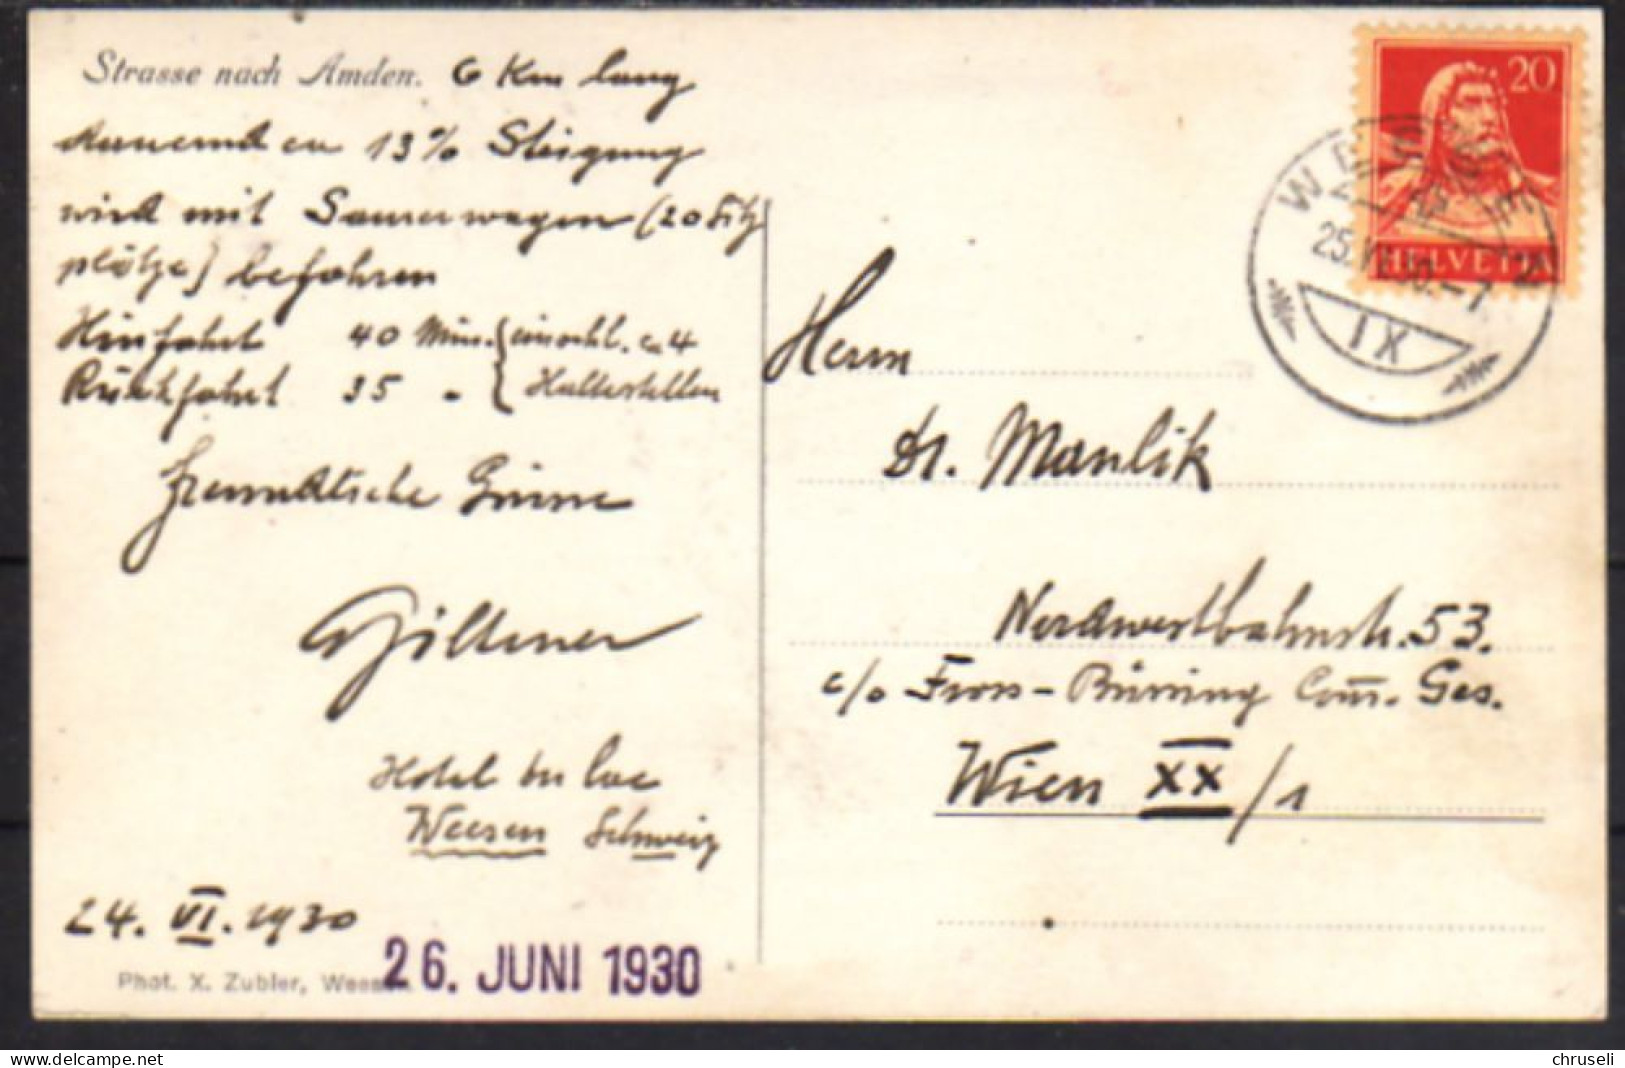 Strasse nach Amden. 6 Km lang
dauernd ca 13% Steigung
wird mit Saurerwagen (20 Sitz
plätze) befahren
Hinfahrt 40 Min. { einschl. ca 4
Rückfahrt 35 " { Haltestellen
freundliche Grüsse
Hotel du lac
Weesen Schweiz
24. VI. 1930
26. JUNI 1930
Phot. X. Zubler, Weesen.
20
HELVETIA
WEESEN
25.VI.30.-7
IX
Herrn
Dr. Manlik
Nordwestbahnstr. 53.
c/o Fross-Büssing Com. Ges.
Wien XX/1
chruseli